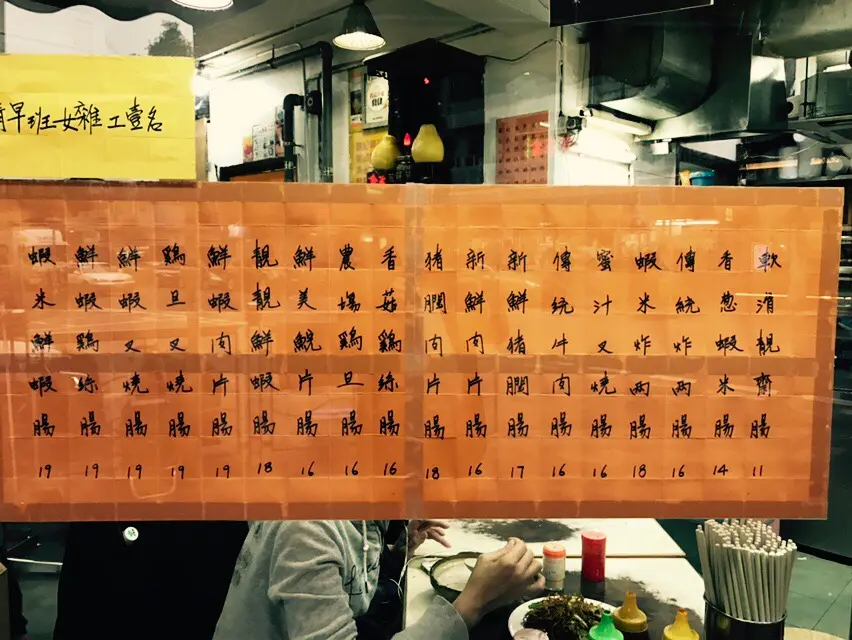 早班女雜工壹名
軟滑靚齋腸 11
香葱蝦米腸 14
傳統炸兩腸 16
蝦米炸兩腸 18
蜜汁叉燒腸 16
傳統牛肉腸 16
新鮮猪膶腸 17
新鮮肉片腸 16
猪膶肉片腸 18
香菇鷄絲腸 16
農場鷄旦腸 16
鮮美鯇片腸 16
靚靚鮮蝦腸 18
鮮蝦肉片腸 19
鷄旦叉燒腸 19
鮮蝦叉燒腸 19
鮮蝦鷄絲腸 19
蝦米鮮蝦腸 19